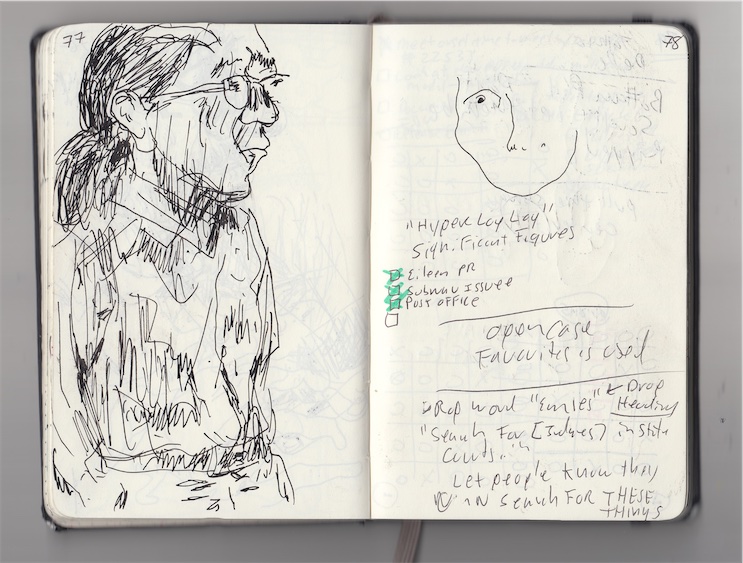 77
78
"Hyper Lay Lay"
Significant Figures
Eileen PR
Subway Issue
Post office
open case
Favourites is used
word "Entries" ← Drop
Heading
"Search For [Judges] in State
Let people know they
in search FOR THESE
THINGS